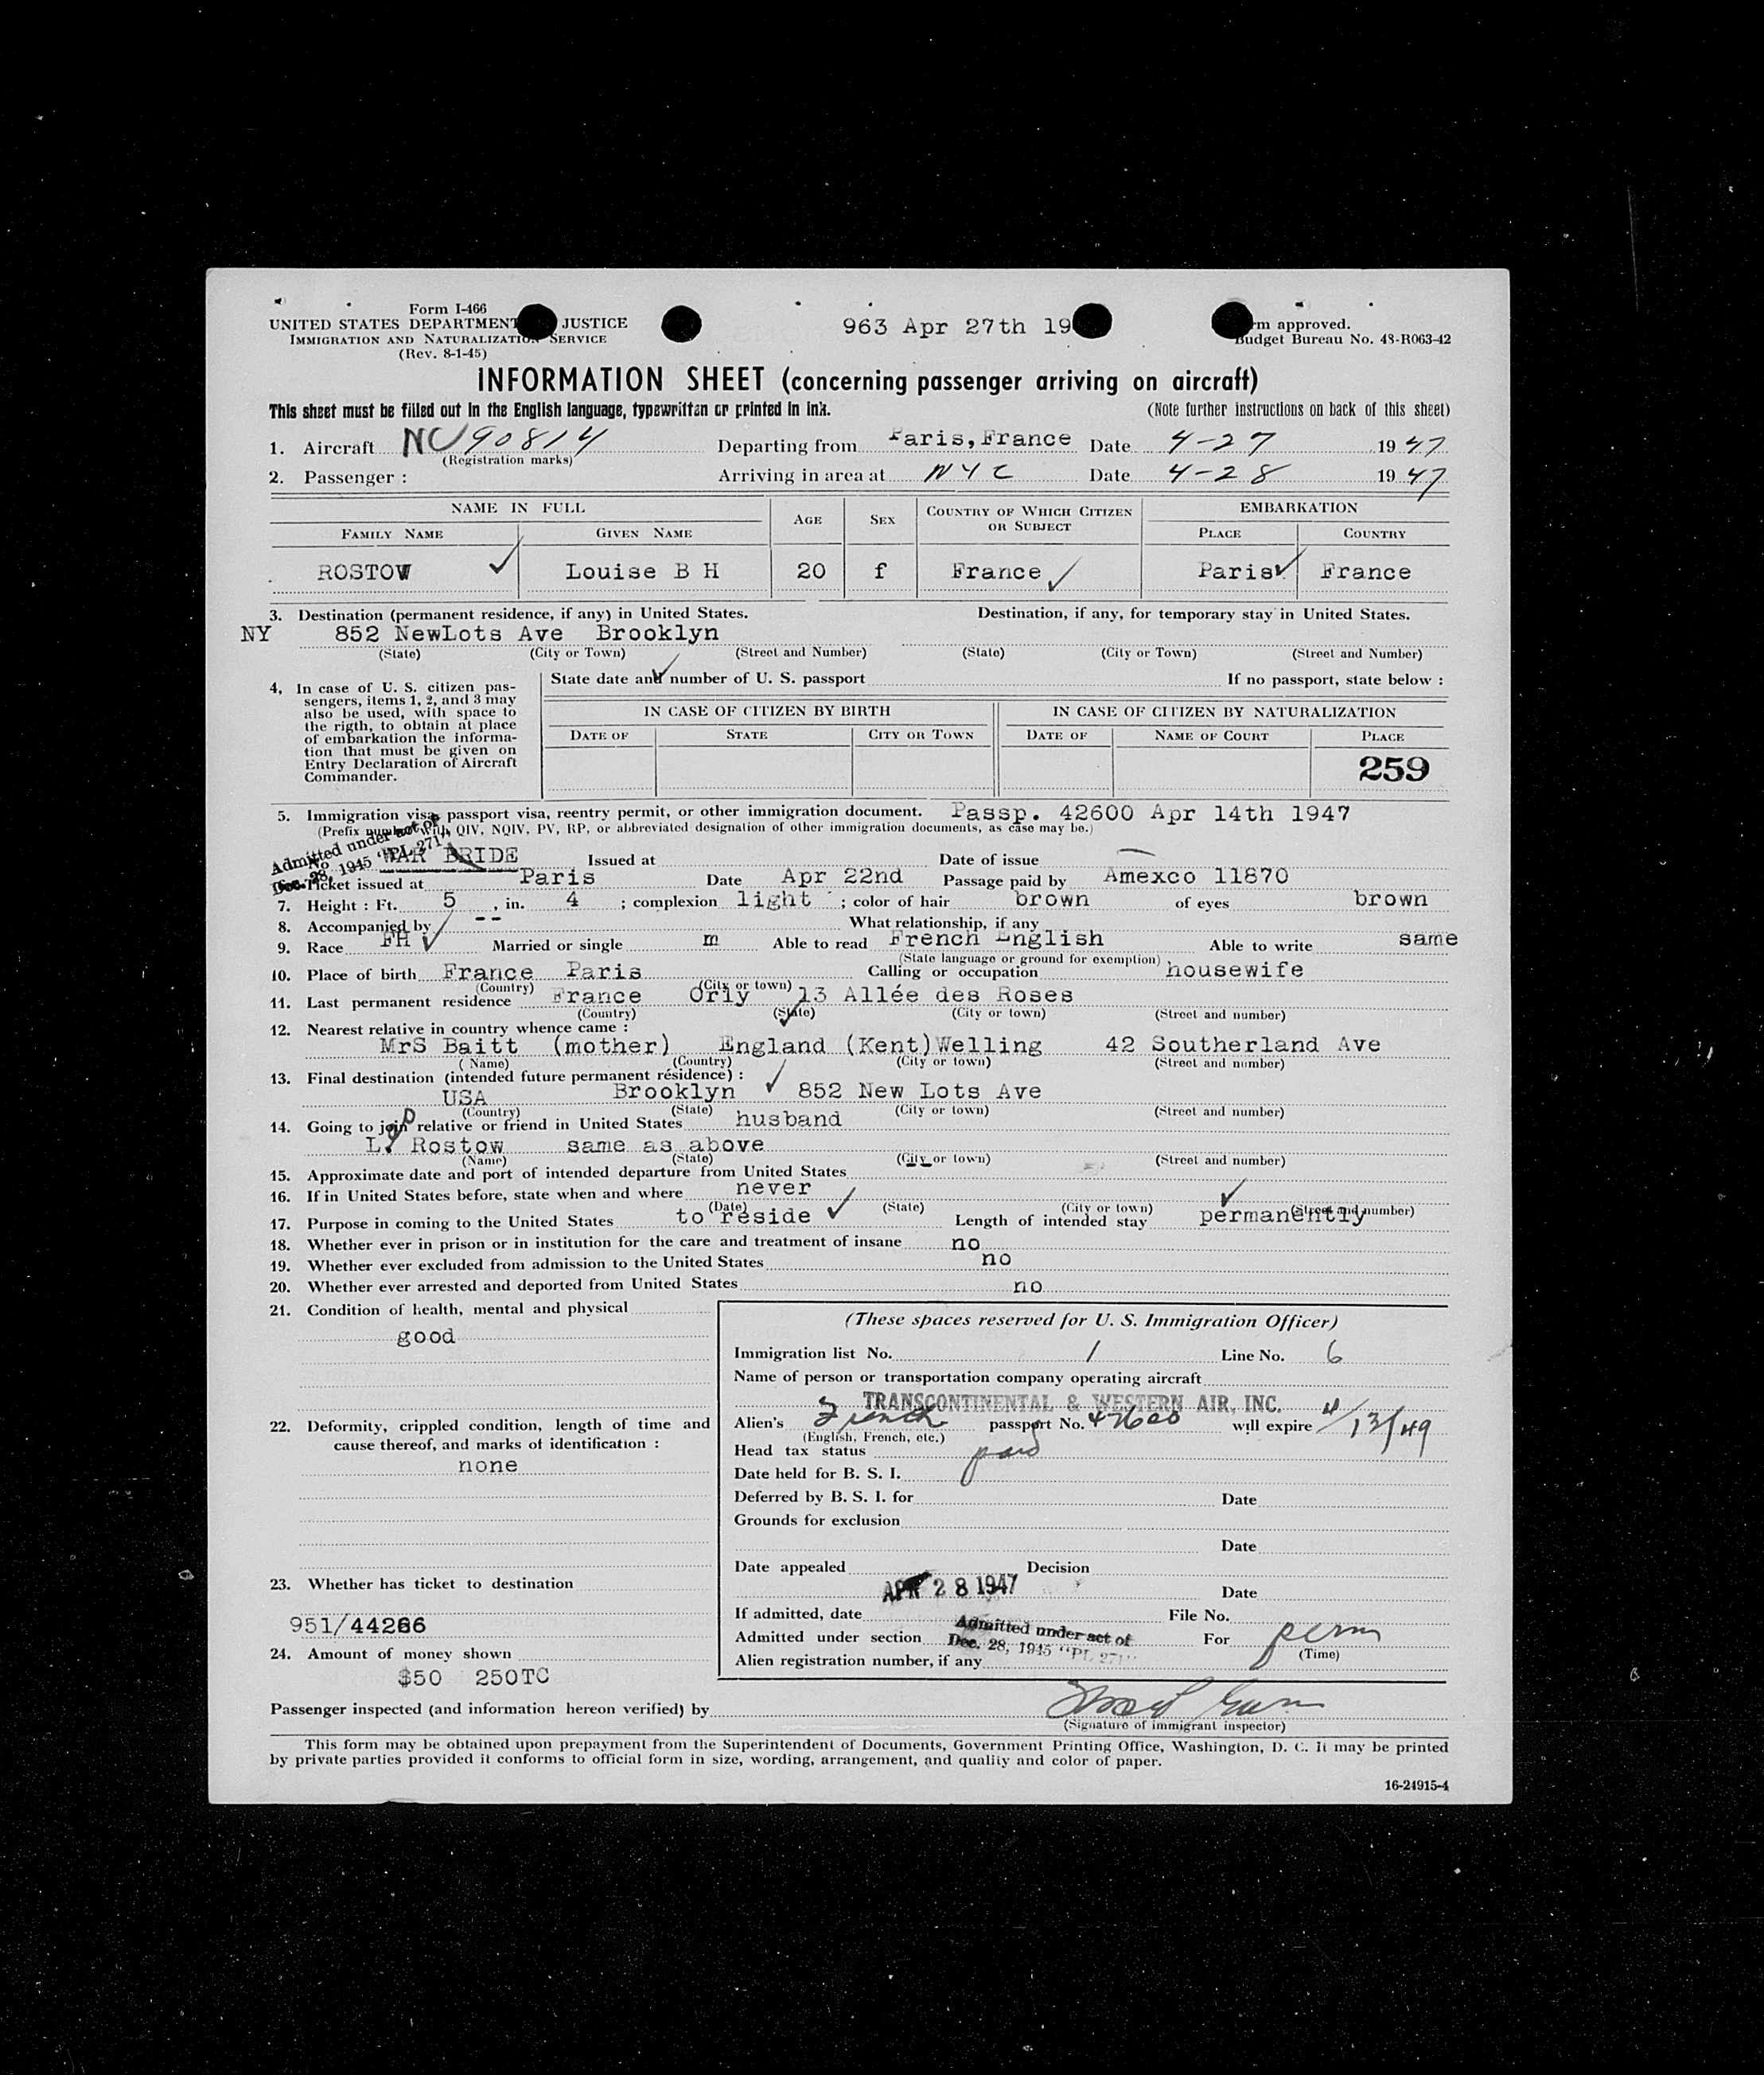 Form I-466
UNITED STATES DEPARTMENT JUSTICE
IMMIGRATION AND NATURALIZATION SERVICE
(Rev. 8-1-45)
963 Apr 27th 19
rm approved.
Budget Bureau No. 43-R063-42
INFORMATION SHEET (concerning passenger arriving on aircraft)
This sheet must be filled out in the English language, typewritten or printed in ink. (Note further instructions on back of this sheet)
1. Aircraft NC 90814 Departing from Paris, France Date 4-27 1947
(Registration marks)
2. Passenger : Arriving in area at NYC Date 4-28 1947
NAME IN FULL AGE SEX COUNTRY OF WHICH CITIZEN OR SUBJECT EMBARKATION
FAMILY NAME GIVEN NAME PLACE COUNTRY
ROSTOW Louise B H 20 f France Paris France
3. Destination (permanent residence, if any) in United States. Destination, if any, for temporary stay in United States.
NY 852 NewLots Ave Brooklyn
(State) (City or Town) (Street and Number) (State) (City or Town) (Street and Number)
4, In case of U. S. citizen pas-
sengers, items 1, 2, and 3 may
also be used, with space to
the rigth, to obtain at place
of embarkation the informa-
tion that must be given on
Entry Declaration of Aircraft
Commander.
State date and number of U. S. passport If no passport, state below :
IN CASE OF CITIZEN BY BIRTH IN CASE OF CITIZEN BY NATURALIZATION
DATE OF STATE CITY OR TOWN DATE OF NAME OF COURT PLACE
259
5. Immigration visa, passport visa, reentry permit, or other immigration document. Passp. 42600 Apr 14th 1947
(Prefix number with QIV, NQIV, PV, RP, or abbreviated designation of other immigration documents, as case may be.)
Admitted under act of
Dec. 28, 1945 "PL 271"
No. WAR BRIDE Issued at Date of issue
6. Ticket issued at Paris Date Apr 22nd Passage paid by Amexco 11870
7. Height : Ft. 5 , in. 4 ; complexion light ; color of hair brown of eyes brown
8. Accompanied by -- What relationship, if any
9. Race FH Married or single m Able to read French English Able to write same
(State language or ground for exemption)
10. Place of birth France Paris Calling or occupation housewife
(Country) (City or town)
11. Last permanent residence France Orly 13 Allée des Roses
(Country) (State) (City or town) (Street and number)
12. Nearest relative in country whence came :
MrS Baitt (mother) England (Kent)Welling 42 Southerland Ave
(Name) (Country) (City or town) (Street and number)
13. Final destination (intended future permanent résidence) :
USA Brooklyn 852 New Lots Ave
(Country) (State) (City or town) (Street and number)
14. Going to join relative or friend in United States husband
L. Rostow same as above
(Name) (State) (City or town) (Street and number)
15. Approximate date and port of intended departure from United States
16. If in United States before, state when and where never
(Date) (State) (City or town) (Street and number)
17. Purpose in coming to the United States to reside Length of intended stay permanently
18. Whether ever in prison or in institution for the care and treatment of insane no
19. Whether ever excluded from admission to the United States no
20. Whether ever arrested and deported from United States no
21. Condition of health, mental and physical
good
22. Deformity, crippled condition, length of time and
cause thereof, and marks of identification :
none
23. Whether has ticket to destination
951/44266
24. Amount of money shown
$50 250TC
(These spaces reserved for U. S. Immigration Officer)
Immigration list No. 1 Line No. 6
Name of person or transportation company operating aircraft
TRANSCONTINENTAL & WESTERN AIR, INC.
Alien's French passport No. 42600 will expire 4/13/49
(English, French, etc.)
Head tax status paid
Date held for B. S. I.
Deferred by B. S. I. for Date
Grounds for exclusion
Date
Date appealed Decision
APR 28 1947 Date
If admitted, date File No.
Admitted under section Admitted under act of Dec. 28, 1945 "PL 271" For perm
(Time)
Alien registration number, if any
Passenger inspected (and information hereon verified) by
(Signature of immigrant inspector)
This form may be obtained upon prepayment from the Superintendent of Documents, Government Printing Office, Washington, D. C. It may be printed
by private parties provided it conforms to official form in size, wording, arrangement, and quality and color of paper.
16-24915-4